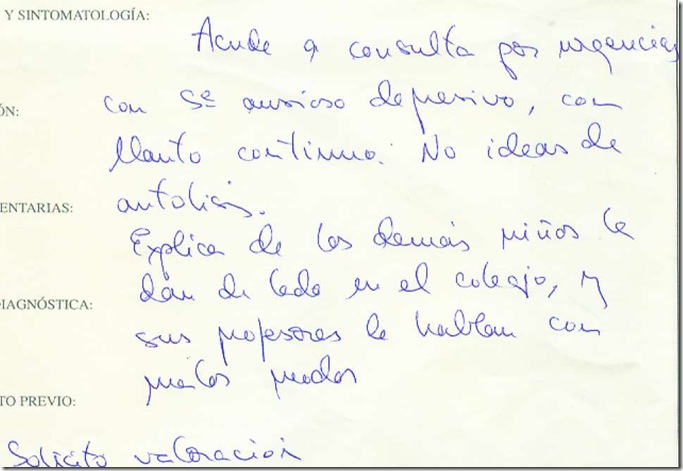 Y SINTOMATOLOGÍA:
Acude a consulta por urgencias
con Sᵉ ansioso depresivo, con
ÓN:
llanto continuo. No ideas de
ENTARIAS:
autolisis.
Explica de los demás niños le
dan de lado en el colegio, y
DIAGNÓSTICA:
sus profesores le hablan con
malos modos
TO PREVIO:
Solicito valoración